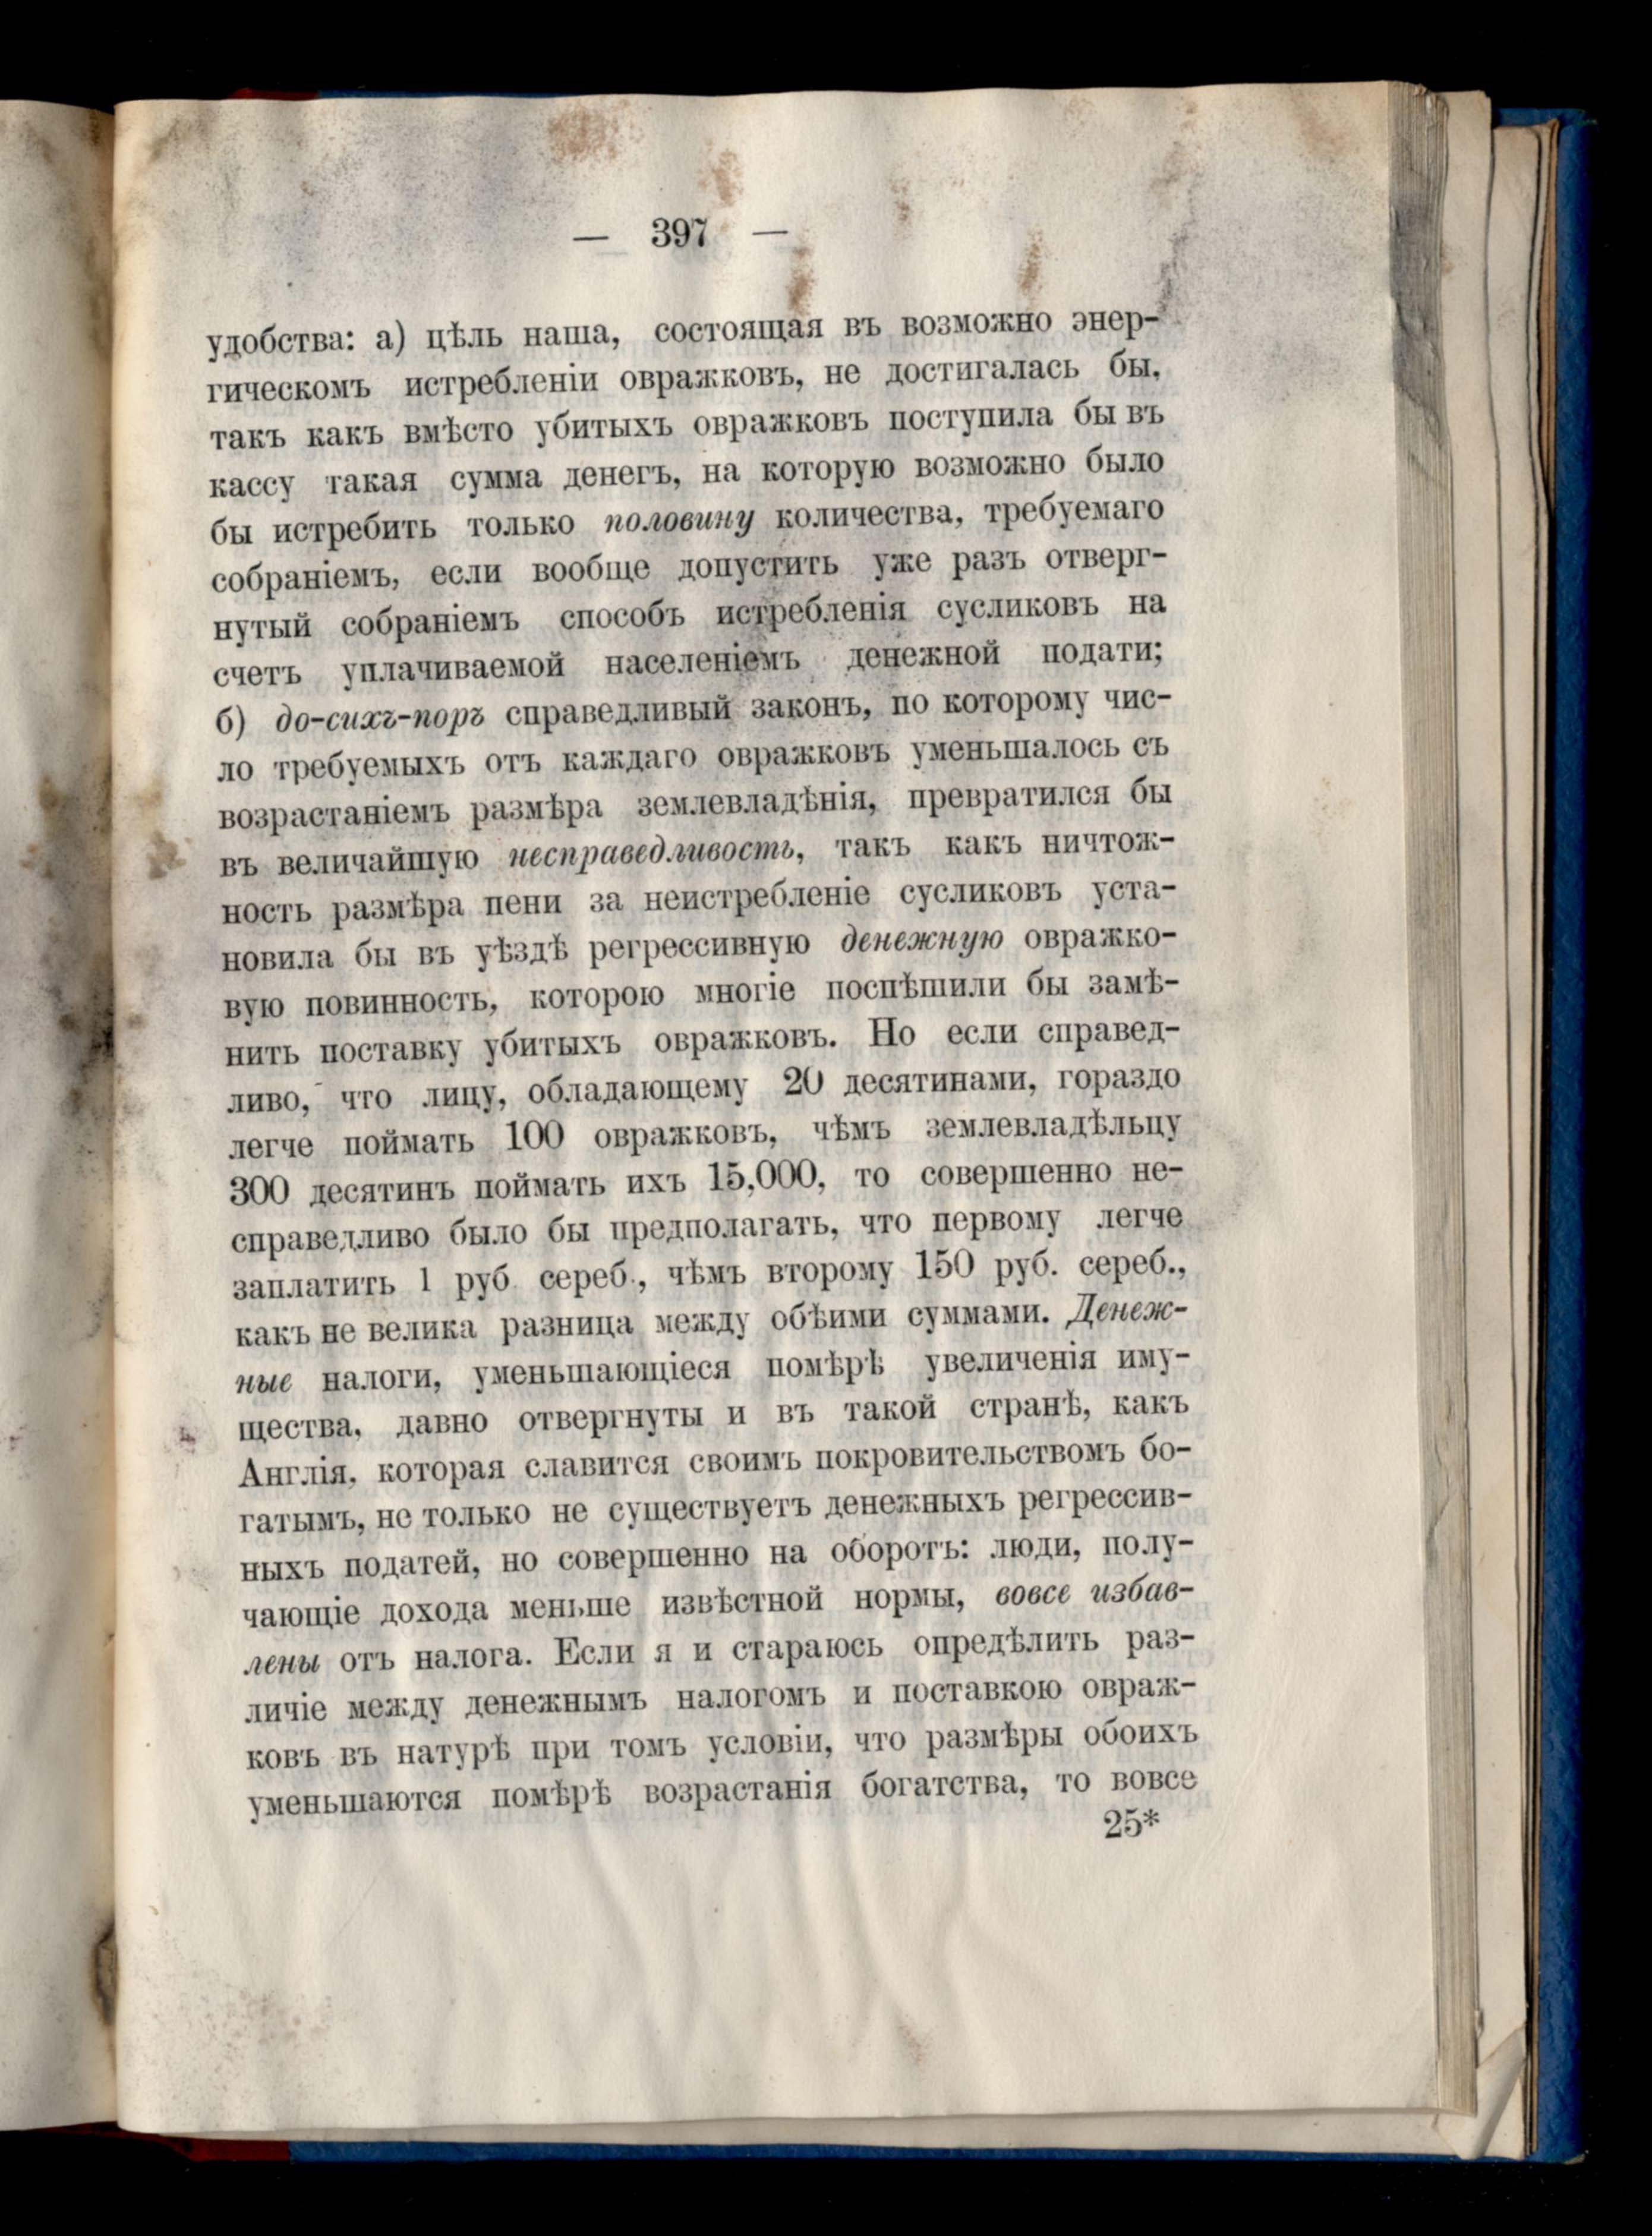 — 397 —
удобства: а) цѣль наша, состоящая въ возможно энер-
гическомъ истребленіи овражковъ, не достигалась бы,
такъ какъ вмѣсто убитыхъ овражковъ поступила бы въ
кассу такая сумма денегъ, на которую возможно было
бы истребить только половину количества, требуемаго
собраніемъ, если вообще допустить уже разъ отверг-
нутый собраніемъ способъ истребленія сусликовъ на
счетъ уплачиваемой населеніемъ денежной подати;
б) до-сихъ-поръ справедливый законъ, по которому чис-
ло требуемыхъ отъ каждаго овражковъ уменьшалось съ
возрастаніемъ размѣра землевладѣнія, превратился бы
въ величайшую несправедливость, такъ какъ ничтож-
ность размѣра пени за неистребленіе сусликовъ уста-
новила бы въ уѣздѣ регрессивную денежную овражко-
вую повинность, которою многіе поспѣшили бы замѣ-
нить поставку убитыхъ овражковъ. Но если справед-
ливо, что лицу, обладающему 20 десятинами, гораздо
легче поймать 100 овражковъ, чѣмъ землевладѣльцу
300 десятинъ поймать ихъ 15,000, то совершенно не-
справедливо было бы предполагать, что первому легче
заплатить 1 руб. сереб., чѣмъ второму 150 руб. сереб.,
какъ не велика разница между обѣими суммами. Денеж-
ные налоги, уменьшающіеся помѣрѣ увеличенія иму-
щества, давно отвергнуты и въ такой странѣ, какъ
Англія, которая славится своимъ покровительствомъ бо-
гатымъ, не только не существуетъ денежныхъ регрессив-
ныхъ податей, но совершенно на оборотъ: люди, полу-
чающіе дохода меньше извѣстной нормы, вовсе избав-
лены отъ налога. Если я и стараюсь опредѣлить раз-
личіе между денежнымъ налогомъ и поставкою овраж-
ковъ въ натурѣ при томъ условіи, что размѣры обоихъ
уменьшаются помѣрѣ возрастанія богатства, то вовсе
25*